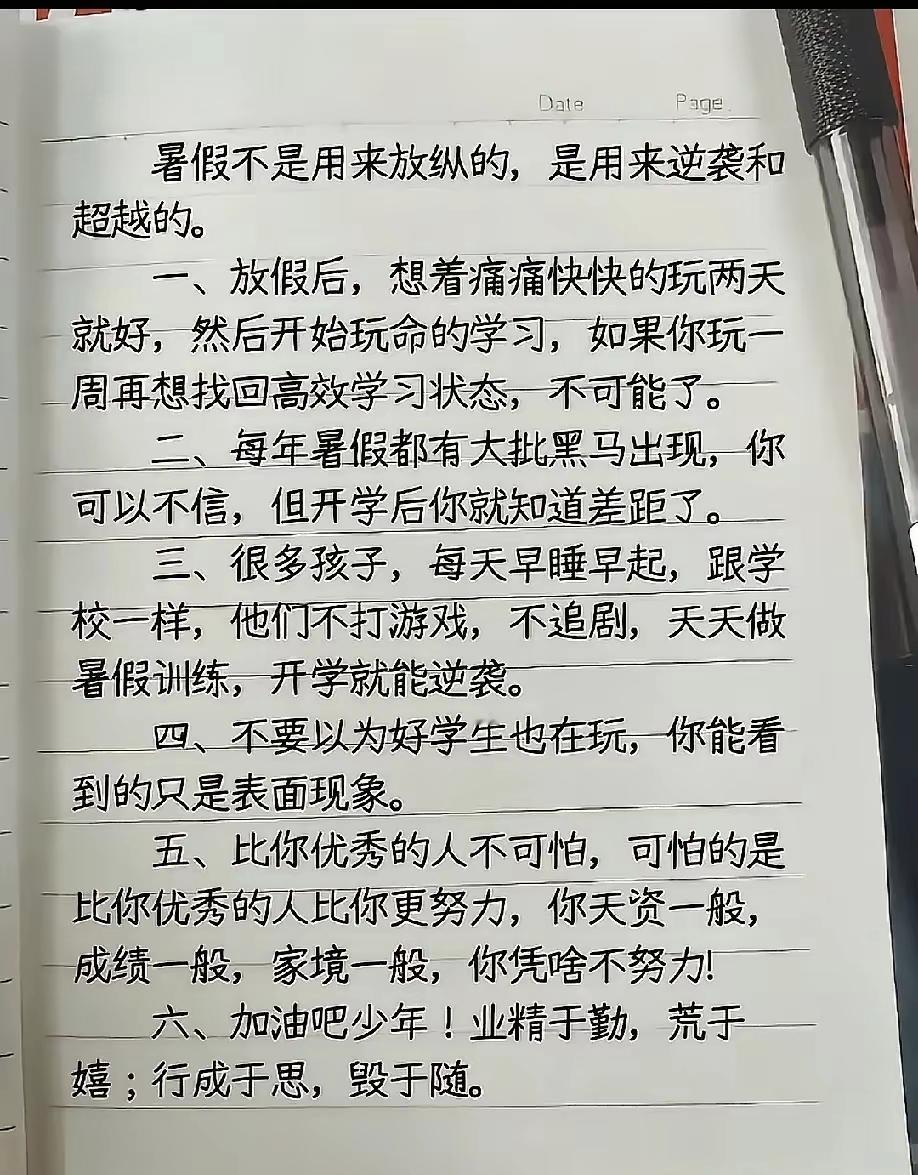 Date Page.
暑假不是用来放纵的，是用来逆袭和
超越的。
一、放假后，想着痛痛快快的玩两天
就好，然后开始玩命的学习，如果你玩一
周再想找回高效学习状态，不可能了。
二、每年暑假都有大批黑马出现，你
可以不信，但开学后你就知道差距了。
三、很多孩子，每天早睡早起，跟学
校一样，他们不打游戏，不追剧，天天做
暑假训练，开学就能逆袭。
四、不要以为好学生也在玩，你能看
到的只是表面现象。
五、比你优秀的人不可怕，可怕的是
比你优秀的人比你更努力，你天资一般，
成绩一般，家境一般，你凭啥不努力!
六、加油吧少年！业精于勤，荒于
嬉；行成于思，毁于随。